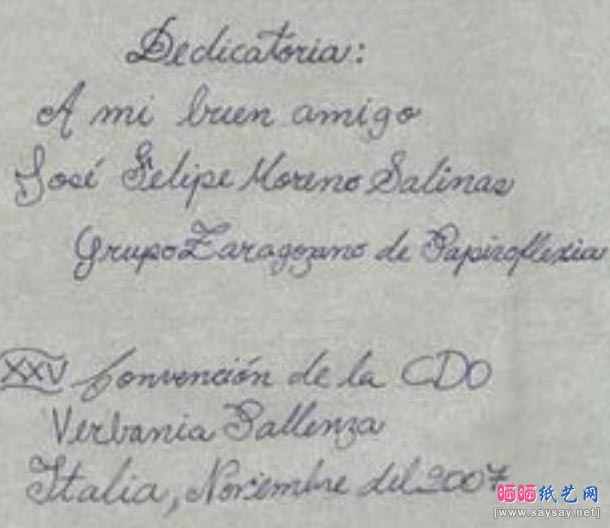 Dedicatoria:
A mi buen amigo
José Felipe Moreno Salinas
Grupo Zaragozano de Papiroflexia
XXV Convención de la CDO
Verbania Pallenza
Italia, Noviembre del 2007
晒晒纸艺网
[www.saysay.net]